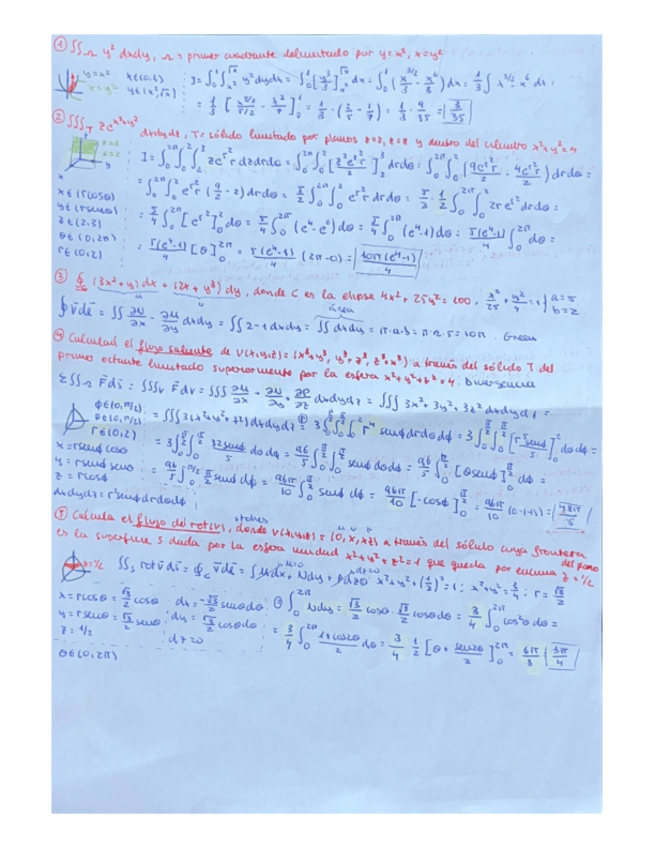 ① ∬_Ω y² dxdy, Ω = primer cuadrante delimitado por y=x², x=y²
y=x² x∈(0,1) I=∫₀¹∫_{x²}^{√x} y² dydx = ∫₀¹ [y³/3]_{x²}^{√x} dx = ∫₀¹ (x^{3/2}/3 - x⁶/3) dx = 1/3 ∫ x^{3/2} - x⁶ dx =
x=y² y∈(x²,√x) = 1/3 [x^{5/2}/5/2 - x⁷/7]¹ = 1/3 · (2/5 - 1/7) = 1/3 · 9/35 = 3/35
② ∭_T z e^{x²+y²} dxdydz, T= sólido limitado por planos z=2, z=3 y dentro del cilindro x²+y²=4
I=∫₀^{2π}∫₀²∫₂³ z e^{r²} r dzdrdθ = ∫₀^{2π}∫₀² [z² e^{r²} r/2]₂³ drdθ = ∫₀^{2π}∫₀² (9e^{r²} r/2 - 4e^{r²} r/2) drdθ =
x∈(r cosθ)
y∈(r senθ)
z∈(2,3)
θ∈(0,2π)
r∈(0,2)
= ∫₀^{2π}∫₀² e^{r²} r (9/2 - 2) drdθ = 5/2 ∫₀^{2π}∫₀² e^{r²} r drdθ = 5/2 · 1/2 ∫₀^{2π}∫₀² 2r e^{r²} drdθ =
= 5/4 ∫₀^{2π} [e^{r²}]₀² dθ = 5/4 ∫₀^{2π} (e⁴ - e⁰) dθ = 5/4 ∫₀^{2π} (e⁴-1) dθ = 5(e⁴-1)/4 ∫₀^{2π} dθ =
= 5(e⁴-1)/4 [θ]₀^{2π} = 5(e⁴-1)/4 (2π-0) = 10π(e⁴-1)/4
③ ∮ (3x²+y) dx + (2x+y³) dy, donde C es la elipse 4x²+25y²=100, x²/25 + y²/4 = 1 { a=5 b=2
∮ v̄ dē = ∬ ∂N/∂x - ∂M/∂y dxdy = ∬ 2-1 dxdy = ∬ dxdy = π·a·b = π·2·5 = 10π. Green
área
④ Calculad el flujo saliente de v(x,y,z)=(x³+y³, y³+z³, z³+x³) a través del sólido T del
primer octante limitado superiormente por la esfera x²+y²+z²=4. Divergencia
F̄ds̄ = ∭_V F̄dv = ∭ ∂M/∂x + ∂N/∂y + ∂P/∂z dxdydz = ∭ 3x²+3y²+3z² dxdydz =
φ∈(0,π/2)
θ∈(0,π/2)
r∈(0,2)
x=r senφ cosθ
y=r senφ senθ
z=r cosφ
dxdydz=r² senφ drdθdφ
= ∭ 3(x²+y²+z²) dxdydz = 3∫₀^{π/2}∫₀^{π/2}∫₀² r⁴ senφ drdθdφ = 3∫₀^{π/2}∫₀^{π/2} [r⁵ senφ/5]₀² dθdφ =
= 3∫₀^{π/2}∫₀^{π/2} 32 senφ/5 dθdφ = 96/5 ∫₀^{π/2}∫₀^{π/2} senφ dθdφ = 96/5 ∫₀^{π/2} [θ senφ]₀^{π/2} dφ =
= 96/5 ∫₀^{π/2} π/2 senφ dφ = 96π/10 ∫₀^{π/2} senφ dφ = 96π/10 [-cosφ]₀^{π/2} = 96π/10 (0-(-1)) = 48π/5
stokes
⑤ Calcula el flujo del rot(v), donde v(x,y,z)=(0, x, xz) a través del sólido cuya frontera
es la superficie S dada por la esfera unidad x²+y²+z²=1 que queda por encima del plano z=1/2
z=1/2 ∬_S rot v̄ ds̄ = ∮_C v̄ dē = ∫ Mdx + Ndy + Pdz x²+y²+(1/2)²=1; x²+y²=3/4; r=√3/2
M=0 dz=0
x=r cosθ=√3/2 cosθ dx=-√3/2 senθdθ
y=r senθ=√3/2 senθ dy=√3/2 cosθdθ
z=1/2 dz=0
θ∈(0,2π)
∫₀^{2π} Ndy = √3/2 cosθ · √3/2 cosθdθ = 3/4 ∫₀^{2π} cos²θ =
= 3/4 ∫₀^{2π} 1+cos2θ/2 dθ = 3/4 · 1/2 [θ + sen2θ/2]₀^{2π} = 6π/8 3π/4